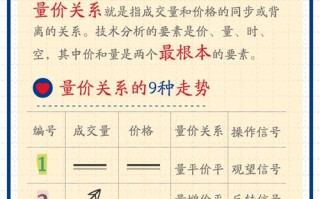 量价关系就是指成交量和价格的同步或背
离的关系。技术分析的要素是价、量、时、
空，其中价和量是两个最根本的要素。
量价关系的9种走势
编号 成交量 价格 量价关系 操作信号
1 量平价平 观望信号